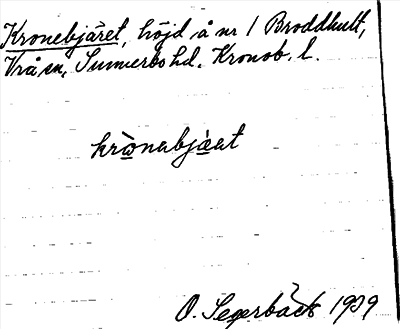 Kronebjäret, höjd å nr 1 Broddhult,
Vrå sn, Sunnerbo hd. Kronob. l.
krònebjæret
O. Segerbäck 1939